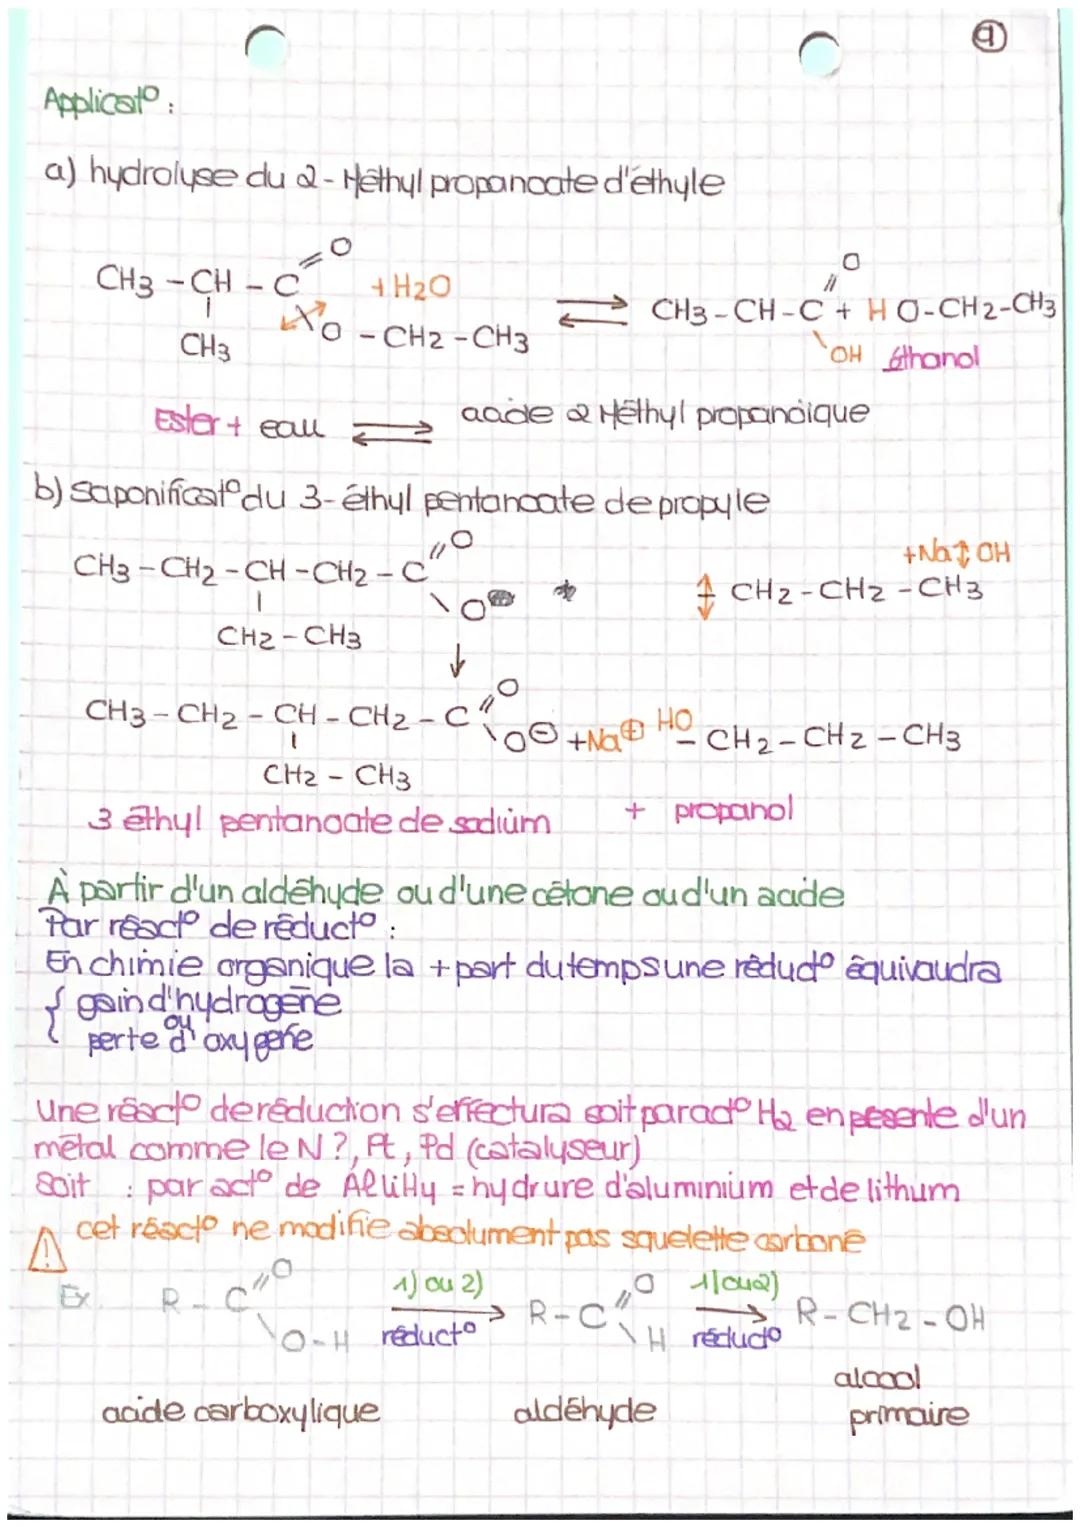 ④
Applicat° :
a) hydrolyse du 2-Méthyl propanoate d'éthyle
CH3 - CH - C =O + H2O ⇌ CH3 - CH - C =O + H O - CH2 - CH3
CH3 \O - CH2 - CH3 \OH éthanol
Ester + eau ⇌ acide 2 Méthyl propanoïque
b) saponificat° du 3-éthyl pentanoate de propyle
+ Na ↕ OH
CH3 - CH2 - CH - CH2 - C =O \O ↕ CH2 - CH2 - CH3
CH2 - CH3
↓
CH3 - CH2 - CH - CH2 - C =O \O⊖ + Na⊕ HO - CH2 - CH2 - CH3
CH2 - CH3
3 éthyl pentanoate de sodium + propanol
À partir d'un aldéhyde ou d'une cétone ou d'un acide
Par réact° de réduct° :
En chimie organique la + part du temps une réduct° équivaudra
{ gain d'hydrogène
ou
perte d'oxygène
Une réact° de réduction s'effectura soit par act° H2 en pésente d'un
métal comme le N ?, Pt, Pd (catalyseur)
Soit : par act° de AlliH4 = hydrure d'aluminium et de lithum
⚠ cet réact° ne modifie absolument pas squelette carboné
Ex. R - C =O \O - H 1) ou 2) → réduct° R - C =O \H 1) ou 2) → réduct° R - CH2 - OH
acide carboxylique aldéhyde alcool
primaire